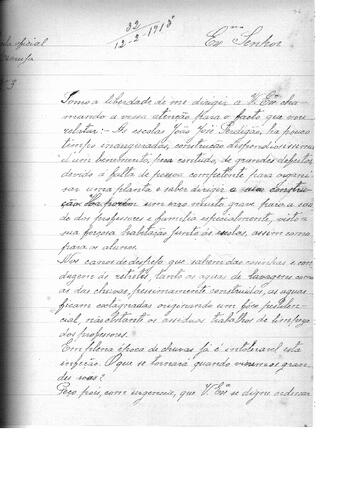 32
12-2-1915
Ex.mo Senhor
oficial
Nº 3
Tomo a liberdade de me dirigir a V. Ex.a cha-
mando a vossa atenção para o facto que vou
relatar: - As escolas João José Perdigão, ha pouco
tempo inauguradas, construção
é um benemérito, bem entendido, de grandes defeitos
devido á falta de pessoa competente para organi-
sar uma planta e saber dirigir a sua constru-
ção. Ha porém um erro muito grave para a saú-
de dos professores e familia especialmente, visto a
sua forçosa habitação junto ás escolas, assim como
para os alunos.
Nos canos de despejo que sahem das cosinhas e con-
dugem ás retretes, tanto as aguas de lavagens como
as das chuvas, pessimamente construidos, as aguas
ficam estagnadas originando um fóco pestilen-
cial, não obstante os assiduos trabalhos de limpeza
dos professores.
Em plena época de chuvas já é intoleravel esta
infeção. O que se tornará quando vierem os gran-
des
Peço pois, com urgencia, que V. Ex.a se digne ordenar